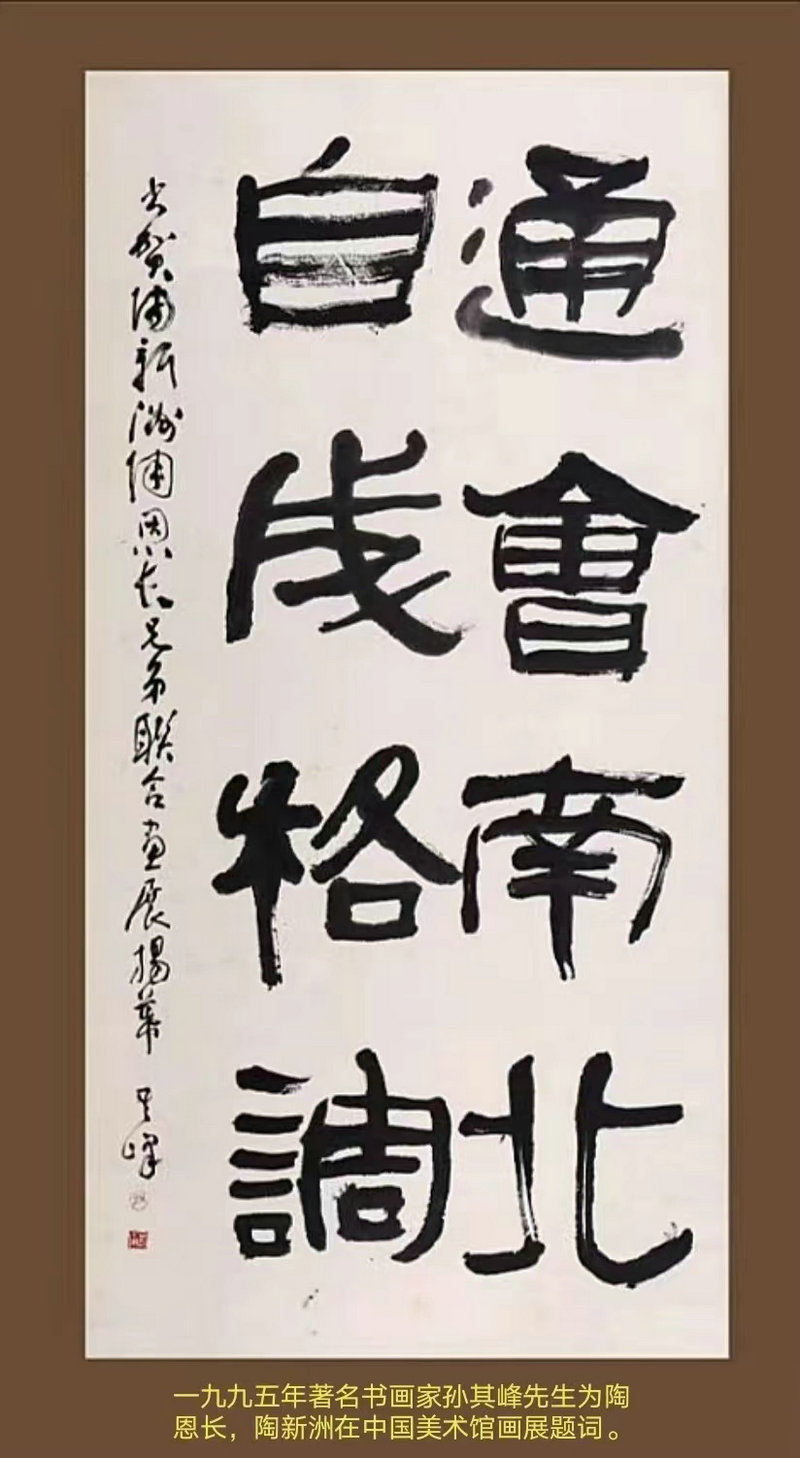 通會南北
自成格調
賀陶新洲陶恩长兄弟联合画展揭幕 其峰
一九九五年著名书画家孙其峰先生为陶
恩长，陶新洲在中国美术馆画展题词。